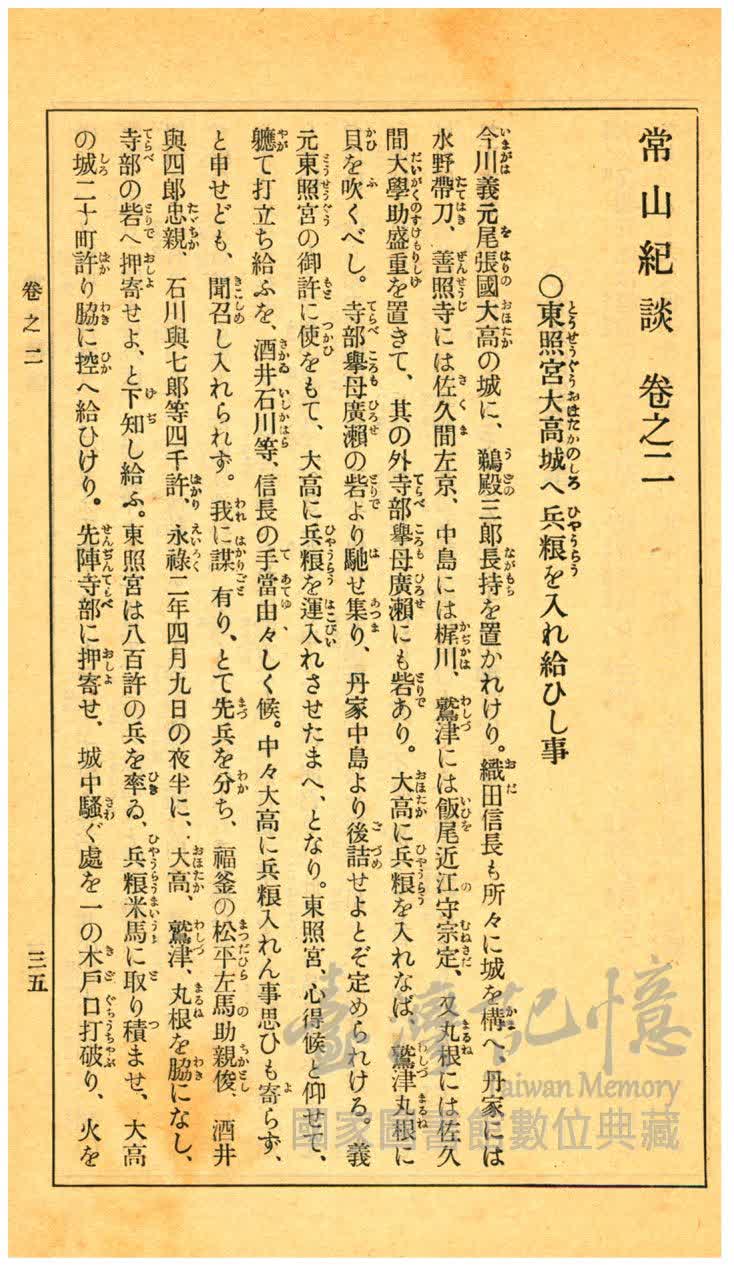 常山紀談 卷之二
〇東照宮大高城へ兵粮を入れ給ひし事
今川義元尾張國大高の城に、鵜殿三郎長持を置かれけり。織田信長も所々に城を構へ、丹家には
水野帶刀、善照寺には佐久間左京、中島には梶川、鷲津には飯尾近江守宗定、又丸根には佐久
間大學助盛重を置きて、其の外寺部擧母廣瀬にも砦あり。大高に兵粮を入れなば、鷲津丸根に
貝を吹くべし。寺部擧母廣瀬の砦より馳せ集り、丹家中島より後詰せよとぞ定められける。義
元東照宮の御許に使をもて、大高に兵粮を運入れさせたまへ、となり。東照宮、心得候と仰せて、
軈て打立ち給ふを、酒井石川等、信長の手當由々しく候。中々大高に兵粮入れん事思ひも寄らず、
と申せども、聞召し入れられず。我に謀有り、とて先兵を分ち、福釜の松平左馬助親俊、酒井
與四郎忠親、石川與七郎等四千許、永祿二年四月九日の夜半に、大高、鷲津、丸根を脇になし、
寺部の砦へ押寄せよ、と下知し給ふ。東照宮は八百許の兵を率ゐ、兵粮米馬に取り積ませ、大高
の城二十町許り脇に控へ給ひけり。先陣寺部に押寄せ、城中騷ぐ處を一の木戶口打破り、火を
卷之二
三五
臺灣記憶
Taiwan Memory
國家圖書館數位典藏